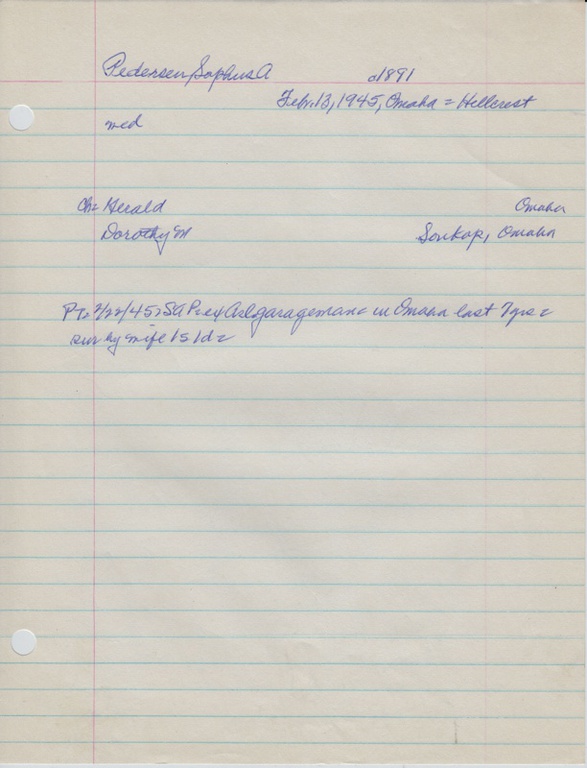 Pedersen, Sophus A c1891
Feb. 13, 1945, Omaha = Hillcrest
md
Ch: Herald Omaha
Dorothy M , Omaha
PT= 2/22/45: SA P= ex Arl garageman= in Omaha last 7 yrs=
sur by wife 1s 1d=